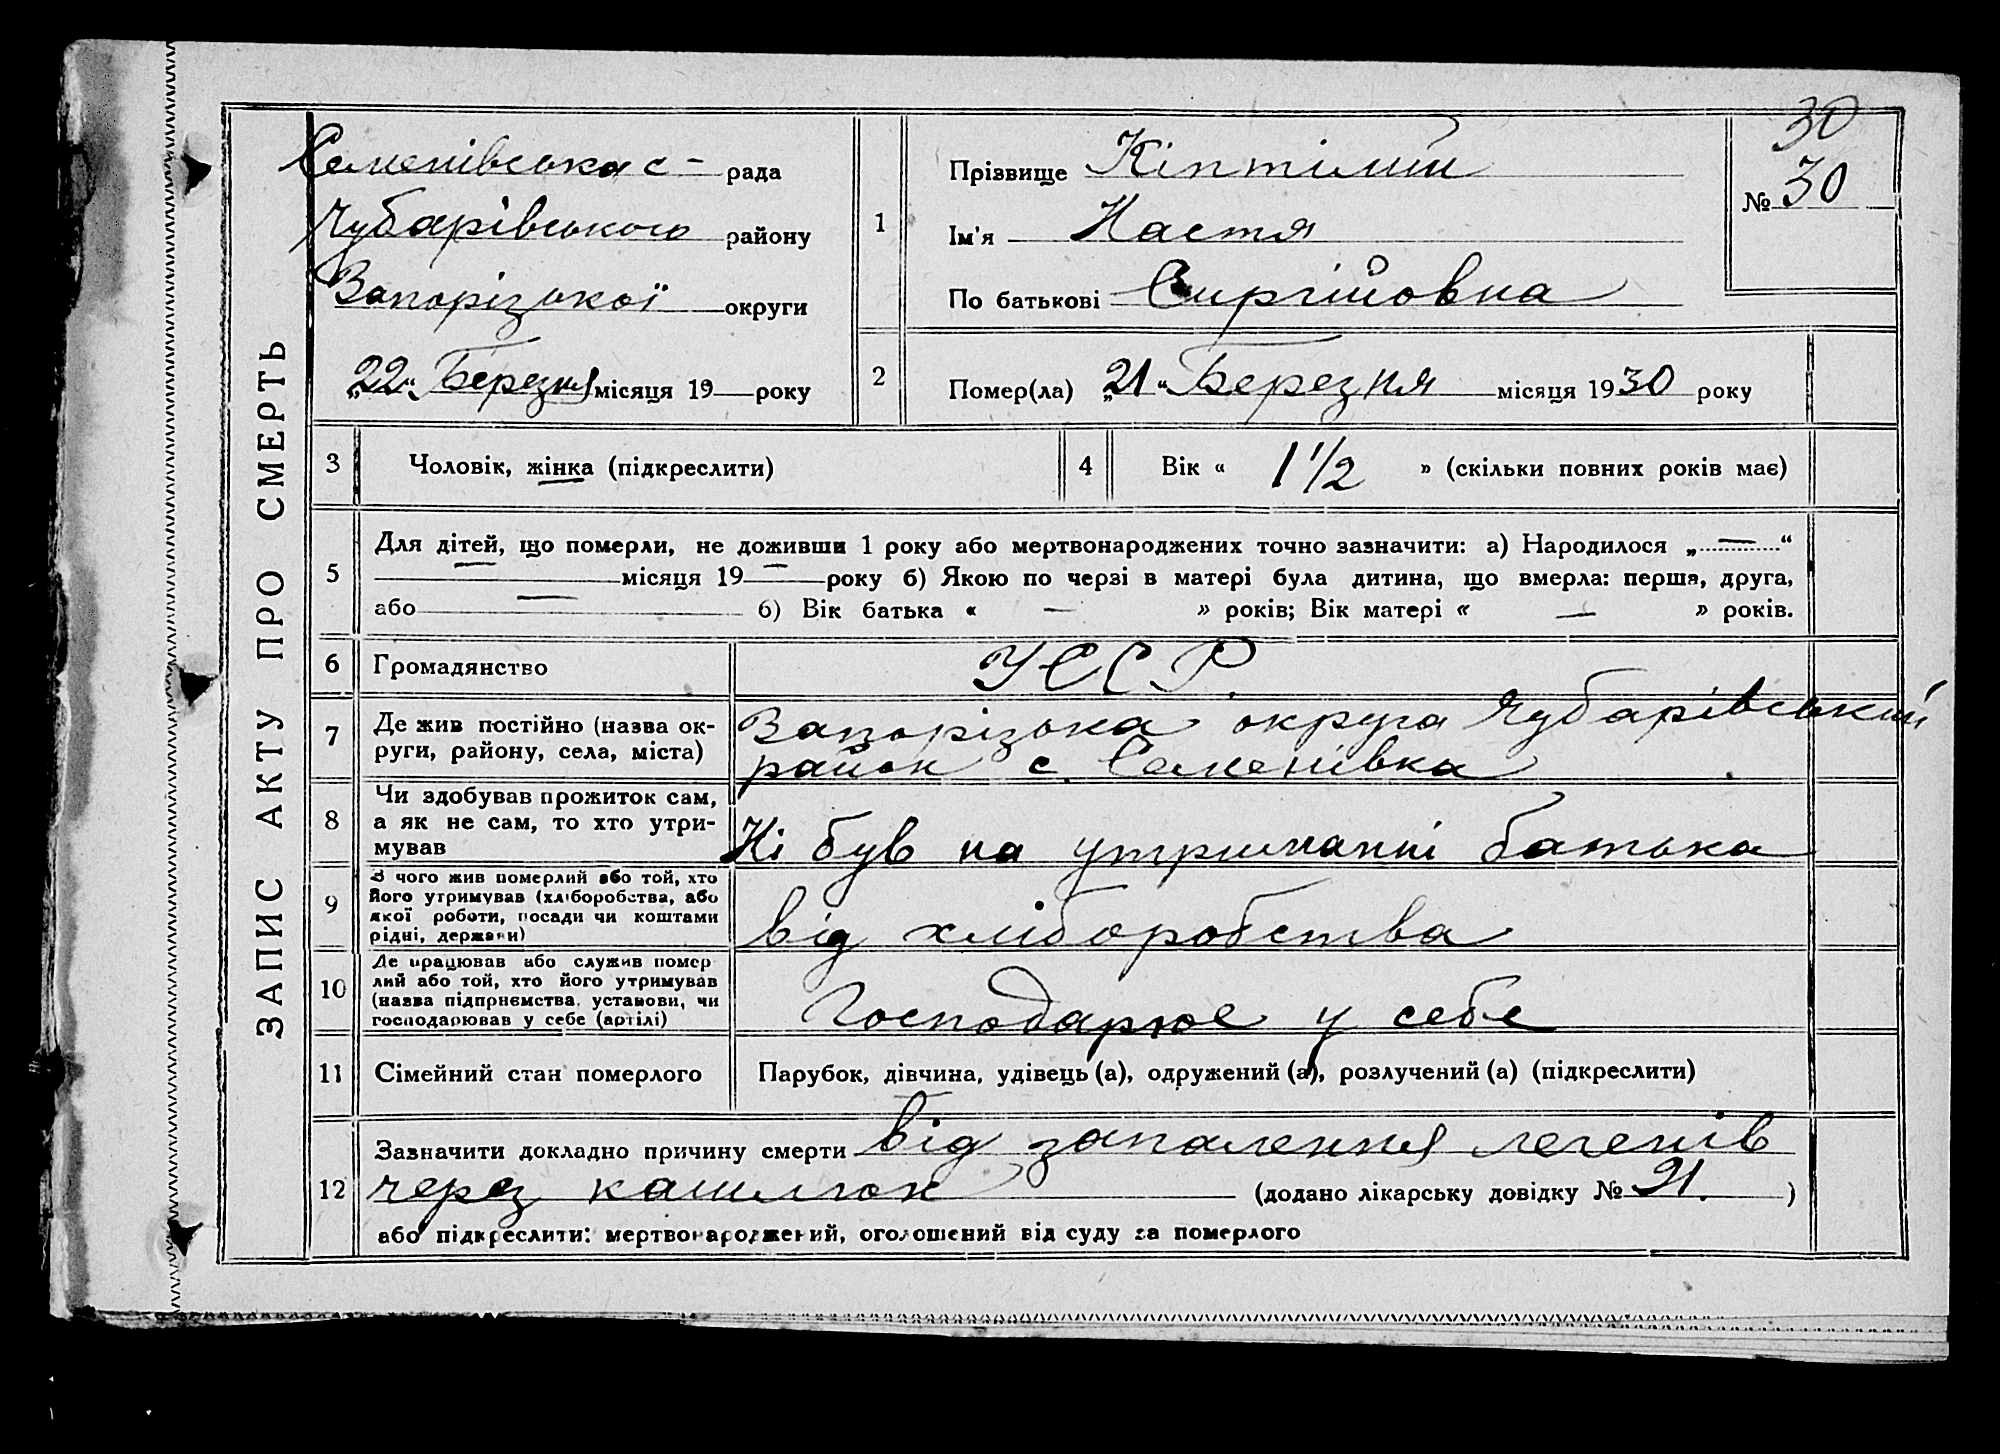 ЗАПИС АКТУ ПРО СМЕРТЬ
30
Семенівська с - рада
Чубарівського району
Запорізької округи
„22“ Березня місяця 19 року
1
Прізвище
Ім'я Настя
По батькові Сиргійовна
№ 30
2
Помер(ла) „21“ Березня місяця 1930 року
3
Чоловік, жінка (підкреслити)
4
Вік « 1 1/2 » (скільки повних років має)
5
Для дітей, що померли, не доживши 1 року або мертвонароджених точно зазначити: а) Народилося „ — “
— місяця 19 — року б) Якою по черзі в матері була дитина, що вмерла: перша, друга,
або — б) Вік батька « — » років; Вік матері « — » років.
6
Громадянство
УССР.
7
Де жив постійно (назва ок-
руги, району, села, міста)
Запорізька округа Чубарівський
район с. Семенівка
8
Чи здобував прожиток сам,
а як не сам, то хто утри-
мував
Ні був на утриманні батька
9
З чого жив померлий або той, хто
його утримував (хліборобства, або
якої роботи, посади чи коштами
рідні, держави)
від хліборобства
10
Де працював або служив помер
лий або той, хто його утримував
(назва підприємства, установи, чи
господарював у себе (артілі)
Господарює у себе
11
Сімейний стан померлого
Парубок, дівчина, удівець (а), одружений (а), розлучений (а) (підкреслити)
12
Зазначити докладно причину смерти від запалення легенів
через кашлюк (додано лікарську довідку № 21. )
або підкреслити: мертвонароджений, оголошений від суду за померлого